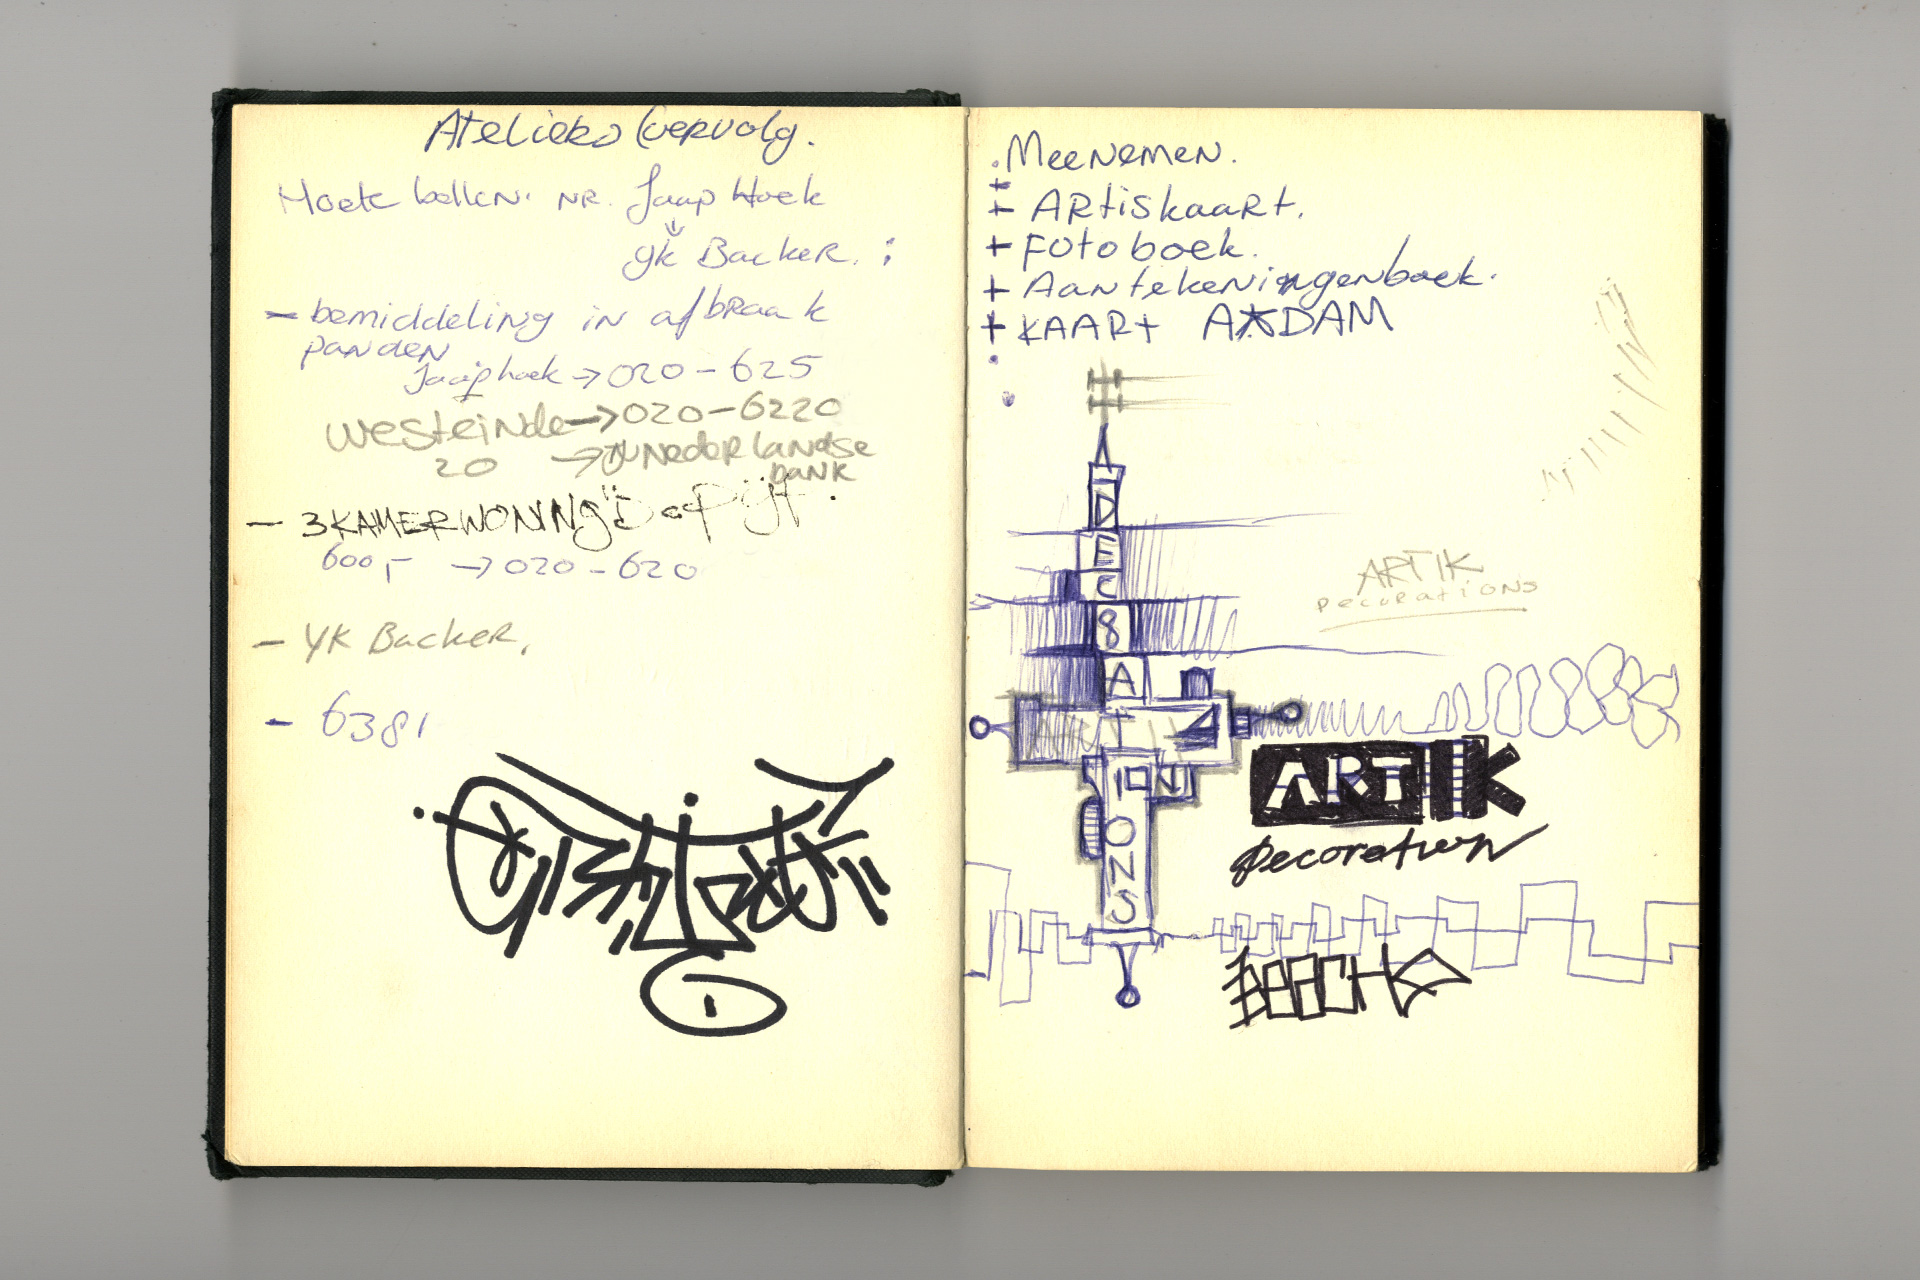 Ateliers (vervolg.
Moete bellen. NR. Jaap Hoek
yk Backer. :
- bemiddeling in afbraak
panden
Jaap hoek → 020-625
Westeinde → 020-6220
20 → Nederlandse
bank
- 3 KAMERWONING "De Pijt".
600,- → 020-620
- YK Backer,
- 6381
. MeeNemen.
+ ARtiskaart.
+ Foto boek.
+ Aantekeningenboek.
+ KAARt A*DAM
DEC8AT
ION
ONS
ARTIK
Decorations
ARTIK
Decoration